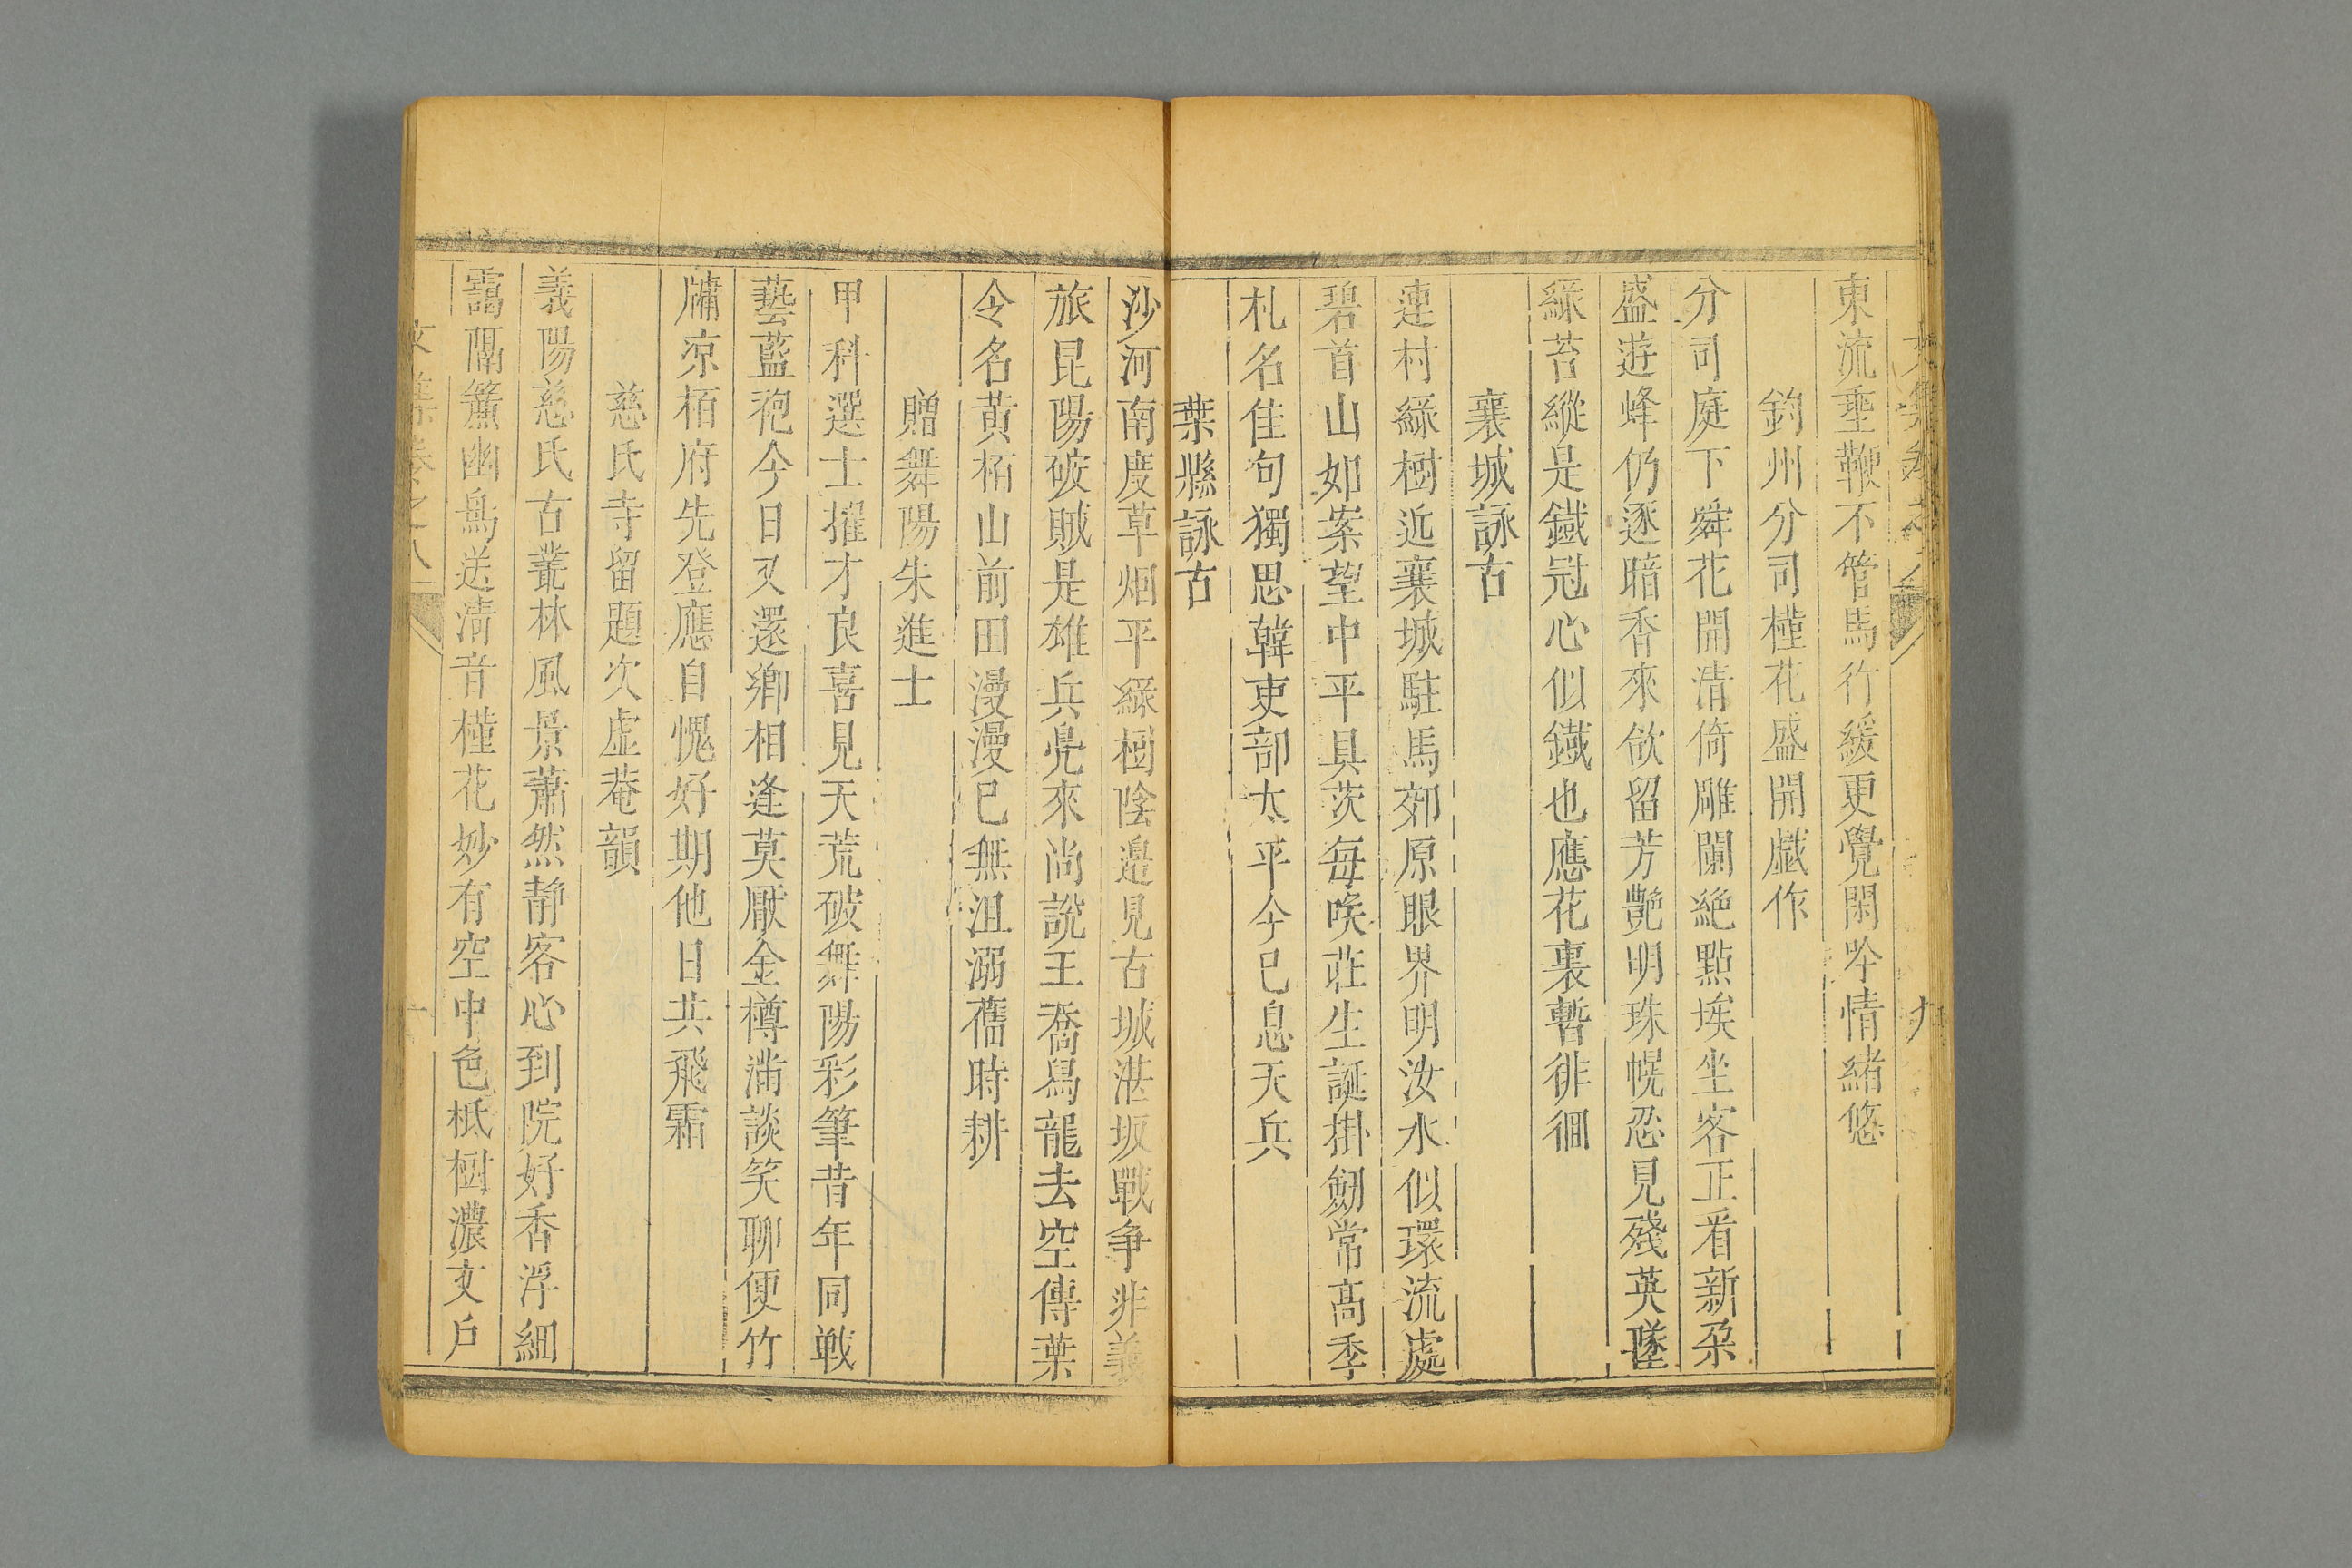 東流垂鞭不管馬行緩更覺閑吟情緒悠
鈞州分司槿花盛開戯作
分司庭下舜花開清倚雕闌絶點埃坐客正看新朶
盛逰蜂仍逐暗香來欲留芳艷明珠幌忍見殘英墜
緑苔縱是鐵冠心似鐡也應花裏暫徘徊
襄城詠古
連村緑樹近襄城駐馬郊原眼界明汝水似環流處
碧首山如案望中平具茨每唤莊生誕掛劒常髙季
札名佳句獨思韓吏部太平今已息天兵
葉縣詠古
沙河南度草烟平緑樹陰邉見古城湛坂戰争非義
旅昆陽破賊是雄兵鳬來尚說王喬舄龍去空傳葉
令名黄栢山前田漫漫已無沮溺舊時耕
贈舞陽朱進士
甲科選士擢才良喜見天荒破舞陽彩筆昔年同戰
藝藍袍今日又還鄉相逢莫厭金樽滿談笑聊便竹
牗凉栢府先登應自愧好期他日共飛霜
慈氏寺留題次虚菴韻
義陽慈氏古叢林風景蕭然静客心到院好香浮細
靄隔簷幽鳥送清音槿花妙有空中色柢樹濃交戶
文集卷之八